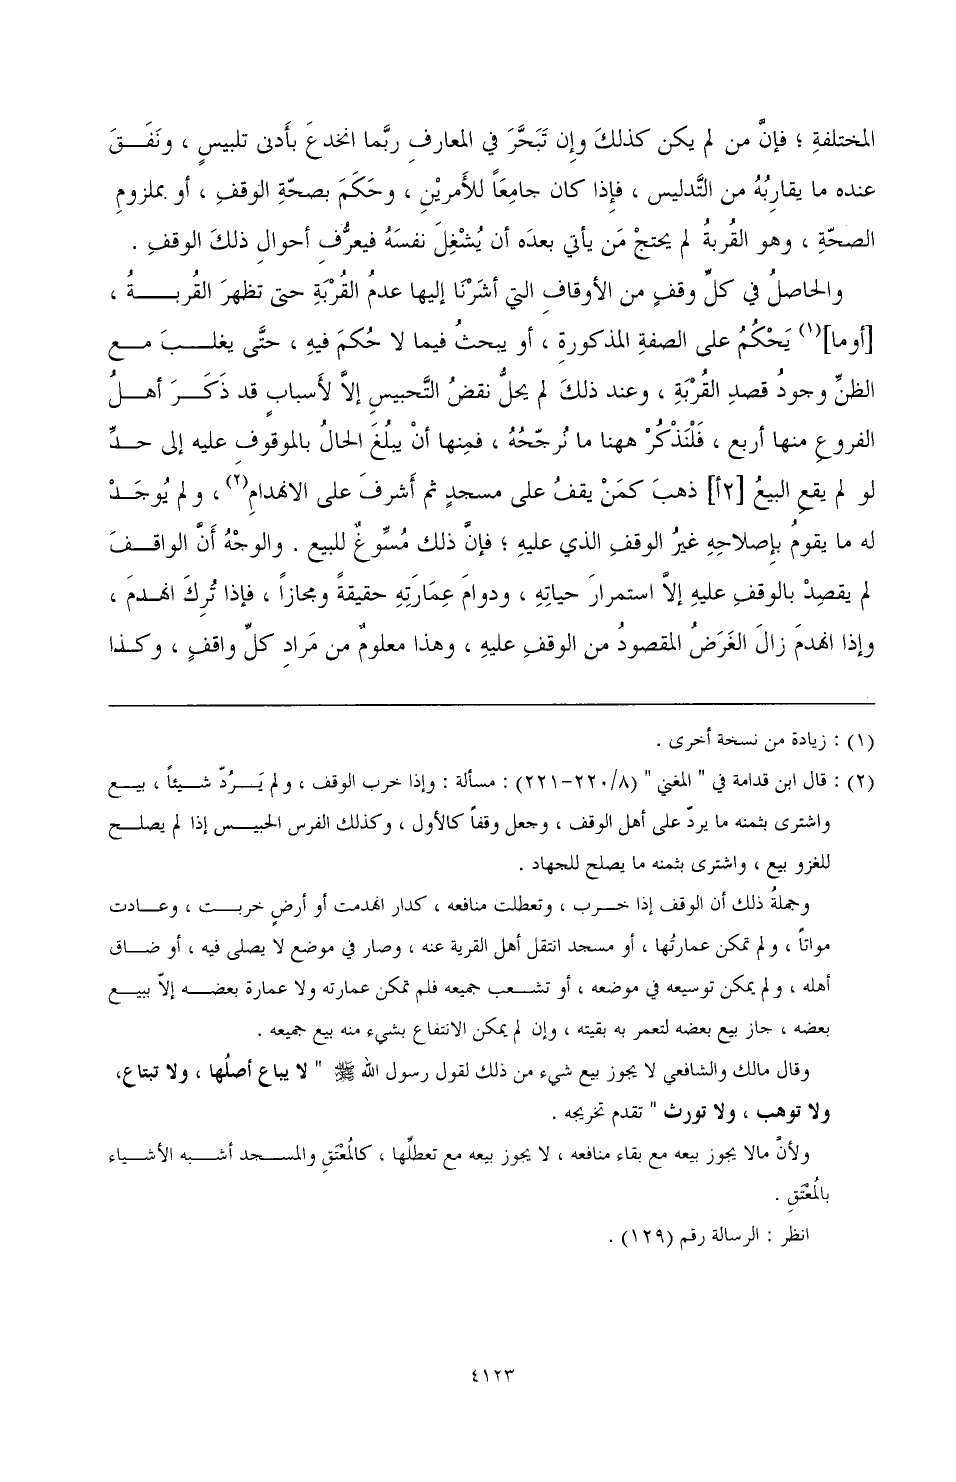 المختلفةِ ؛ فإنَّ من لم يكن كذلكَ وإن تَبَحَّرَ في المعارفِ ربَّما انخدعَ بأَدنى تلبيسٍ ، ونَفَقَ
عنده ما يقاربُهُ من التَّدليس ، فإذا كان جامعَاً للأَمريْنِ ، وحَكَمَ بصحّةِ الوقفِ ، أو بملزومِ
الصحّةِ ، وهو القُربةُ لم يحتجْ مَن يأتي بعدَه أن يُشْغِلَ نفسَهُ فيعرُّفِ أحوالِ ذلكَ الوقفِ .
والحاصلُ في كلِّ وقفٍ من الأوقافِ التي أشَرْنَا إليها عدمُ القُرْبَةِ حتى تظهرَ القُربةُ ،
[أوما](١) يَحْكُمُ على الصفةِ المذكورةِ ، أو يبحثُ فيما لا حُكمَ فيهِ ، حتَّى يغلبَ مع
الظنِّ وجودُ قصدِ القُرْبَةِ ، وعند ذلكَ لم يحلُّ نقضُ التَّحبيسِ إلاَّ لأسبابٍ قد ذَكَرَ أهلُ
الفروعِ منها أربع ، فَلْنَذْكُرْ ههنا ما نُرجّحُهُ ، فمِنها أنْ يبلُغَ الحالُ بالموقوفِ عليه إلى حدِّ
لو لم يقعِ البيعُ [٢أ] ذهبَ كمَنْ يقفُ على مسجدٍ ثم أشرفَ على الانهدامِ(٢) ، ولم يُوجَدْ
له ما يقومُ بإصلاحِهِ غيرُ الوقفِ الذي عليهِ ؛ فإنَّ ذلك مُسوِّغٌ للبيع . والوجْهُ أنَّ الواقفَ
لم يقصِدْ بالوقفِ عليهِ إلاَّ استمرارَ حياتِهِ ، ودوامَ عِمَارَتِهِ حقيقةً ومجازاً ، فإذا تُرِكَ انهدمَ ،
وإذا انهدمَ زالَ الغَرَضُ المقصودُ من الوقفِ عليهِ ، وهذا معلومٌ من مَرادِ كلِّ واقفٍ ، وكذا
(١) : زيادة من نسخة أخرى .
(٢) : قال ابن قدامة في " المغني " (٨/٢٢٠-٢٢١) : مسألة : وإذا خرب الوقف ، ولم يَرُدّ شيئاً ، بيع
واشترى بثمنه ما يردّ على أهل الوقف ، وجعل وقفاً كالأول ، وكذلك الفرس الحبيس إذا لم يصلح
للغزو بيع ، واشترى بثمنه ما يصلح للجهاد .
وجملةُ ذلك أن الوقف إذا خرب ، وتعطلت منافعه ، كدار انهدمت أو أرضٍ خربت ، وعادت
مواتاً ، ولم تمكن عمارتُها ، أو مسجد انتقل أهل القرية عنه ، وصار في موضع لا يصلى فيه ، أو ضاق
أهله ، ولم يمكن توسيعه في موضعه ، أو تشعب جميعه فلم تمكن عمارته ولا عمارة بعضه إلاّ ببيع
بعضه ، جاز بيع بعضه لتعمر به بقيته ، وإن لم يمكن الانتفاع بشيء منه بيع جميعه .
وقال مالك والشافعي لا يجوز بيع شيء من ذلك لقول رسول الله ﷺ " لا يباع أصلُها ، ولا تبتاع،
ولا توهب ، ولا تورث " تقدم تخريجه .
ولأنَّ مالا يجوز بيعه مع بقاء منافعه ، لا يجوز بيعه مع تعطلِّها ، كالمُعْتَقِ والمسجد أشبه الأشياء
بالمُعْتَقِ .
انظر : الرسالة رقم (١٢٩) .
٤١٢٣